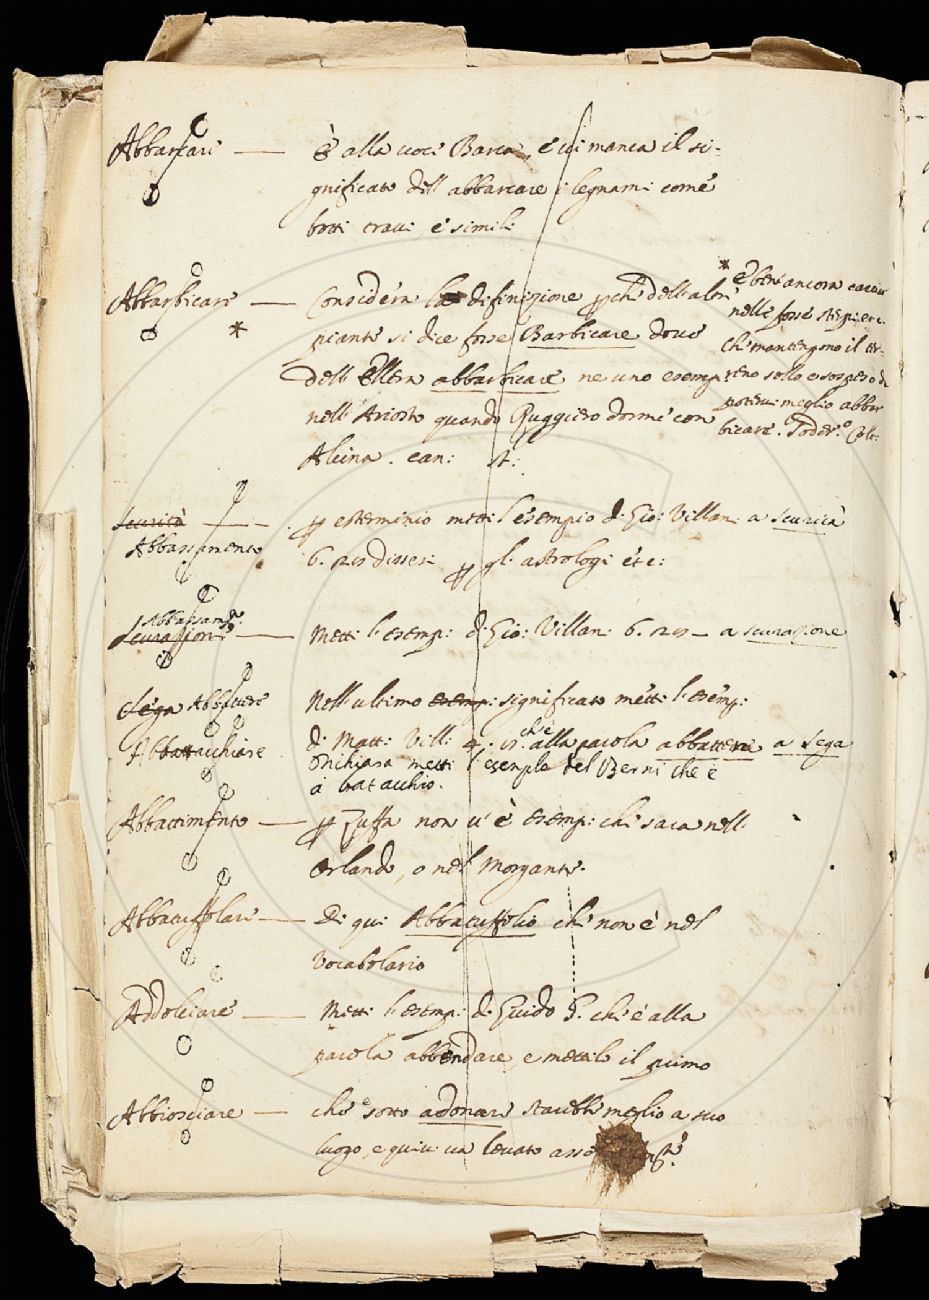 Abbarcare — È alla voce Barca, e vi manca il si-
gnificato dell abbarcare i legnami come
botti travi, e simili
Abbarbicare — Considera la difinizione pche dell'altre
* piante si dice forse Barbicare dove
dell' Ellera abbarbicare ne uno esemp
nell' Ariosto quando Ruggiero dorme con
Alcina. can: st:
* è bene ancora cavar
nelle fosse sterpi etc.
che mantengono il ter-
reno sollo e sospeso
potervi meglio abbar
bicare. Soder.º Colt:
Scurità — p esterminio metti l'esempio di Gio: Villani a scurità
Abbassamento
6. dissesi p gli astrologi etc:
Abbassam.º
Scurazione — Metti l'esemp: di Gio: Villani 6. — a scurazione
Sega Abbattere Nell ultimo esemp: significato metti l'esemp:
di Matt: Vill: 4. che alla parola abbattere a sega
Abbattacchiare metti l'esemplo del Berni che è
a batacchio.
Abbattimento — p Zuffa non v'è esemp: che sara nell
Orlando, o nel Morgante.
Abbatuffolare — Di qui Abbatuffolio che non è nel
Vocabolario
Addolciare — Metti l'esemp: di Guido G. che è alla
parola abbendare, e mettilo il primo
Abbiosciare — che sotto adonare starebbe meglio a suo
luogo, e quivi va levato